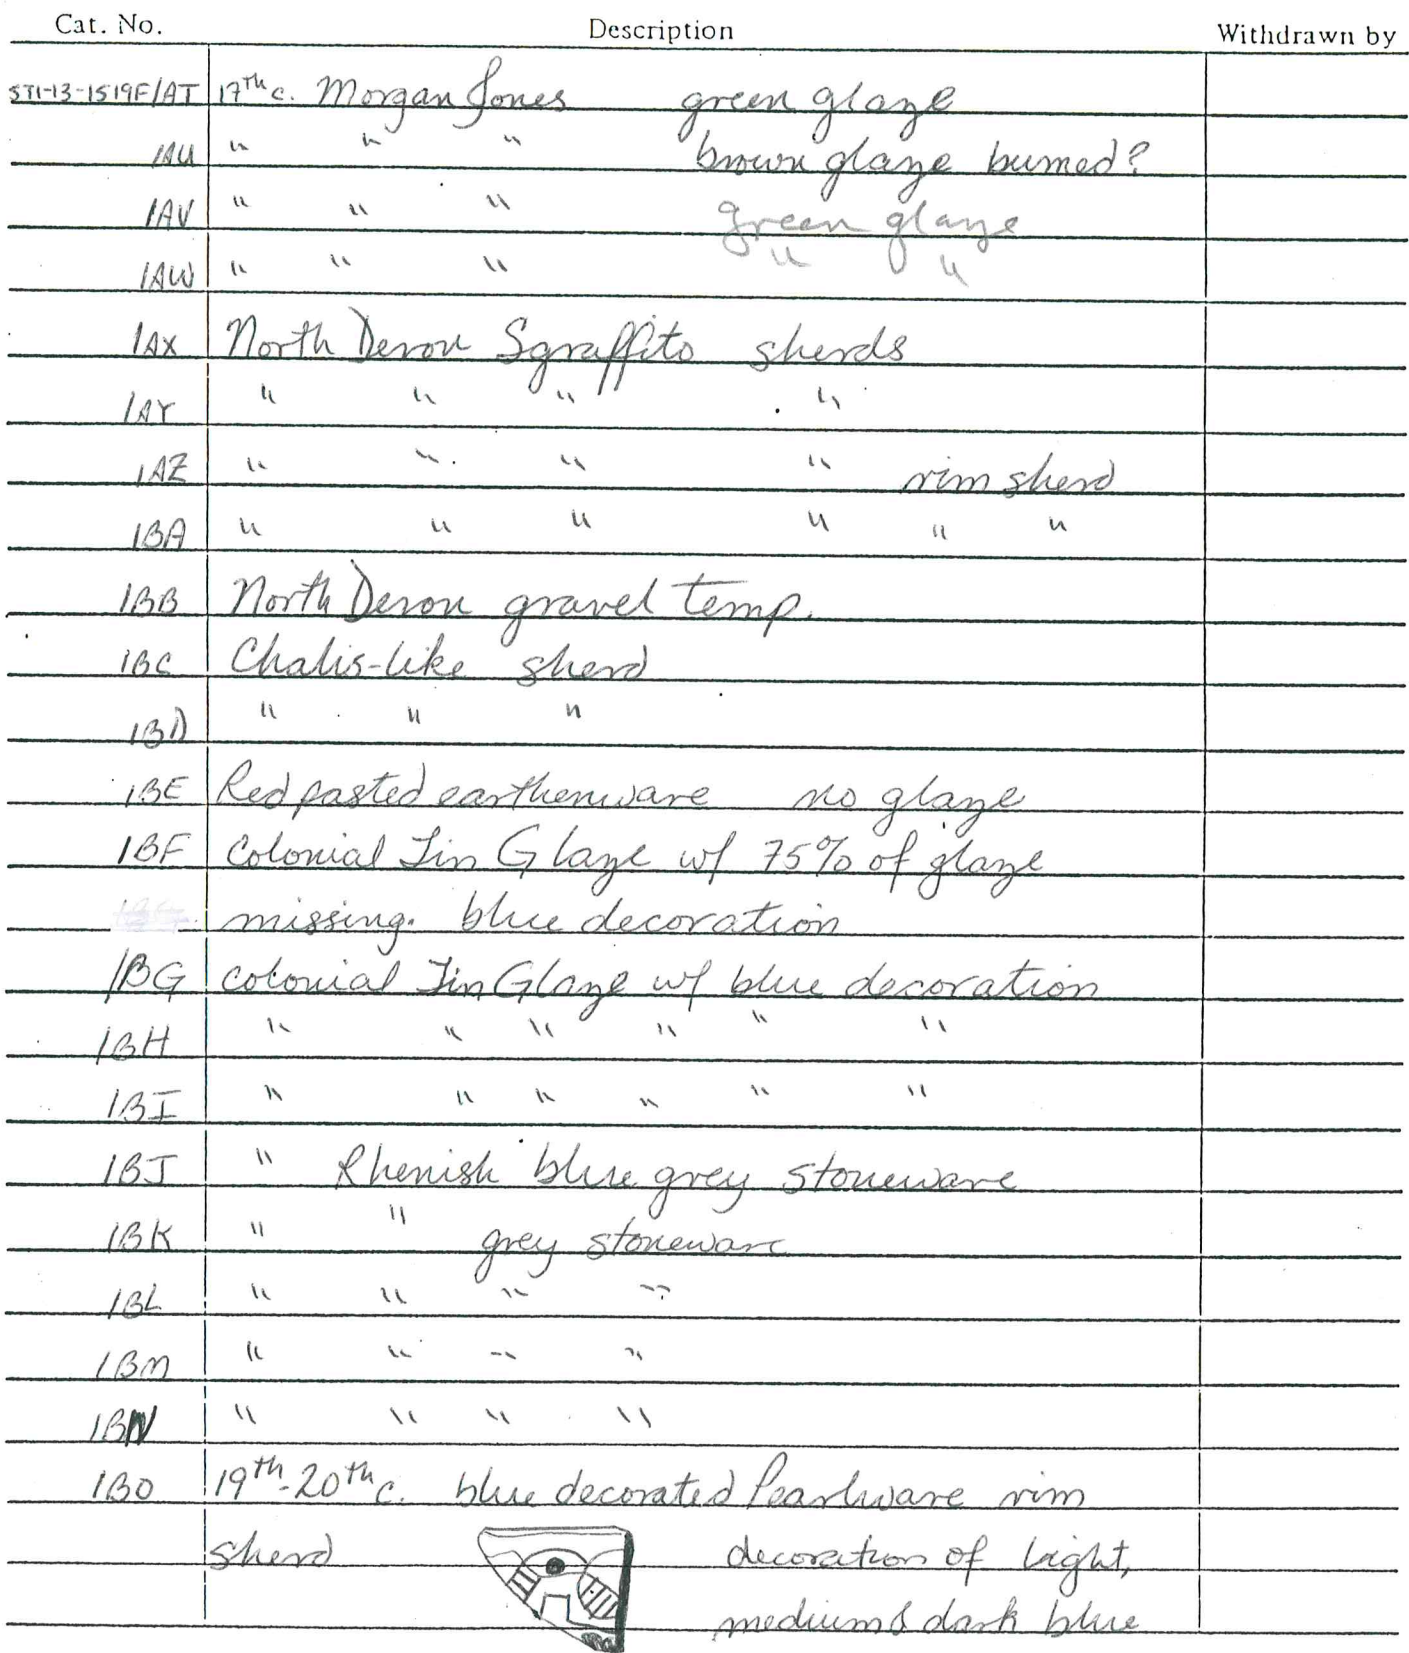 Cat. No. Description Withdrawn by
ST1-13-1519F/AT 17th c. Morgan Jones green glaze
/AU " " " brown glaze burned?
/AV " " " green glaze
/AW " " " " "
/AX North Devon Sgraffito sherds
/AY " " " "
/AZ " " " " rim sherd
/BA " " " " " "
/BB North Devon gravel temp.
/BC Chalis-like sherd
/BD " " "
/BE Red pasted earthenware no glaze
/BF Colonial Tin Glaze w/ 75% of glaze
missing. blue decoration
/BG colonial Tin Glaze w/ blue decoration
/BH " " " " " "
/BI " " " " " "
/BJ " Rhenish blue grey stoneware
/BK " " grey stoneware
/BL " " " "
/BM " " " "
/BN " " " "
/BO 19th-20th c. blue decorated Pearlware rim
sherd decoration of light,
medium & dark blue